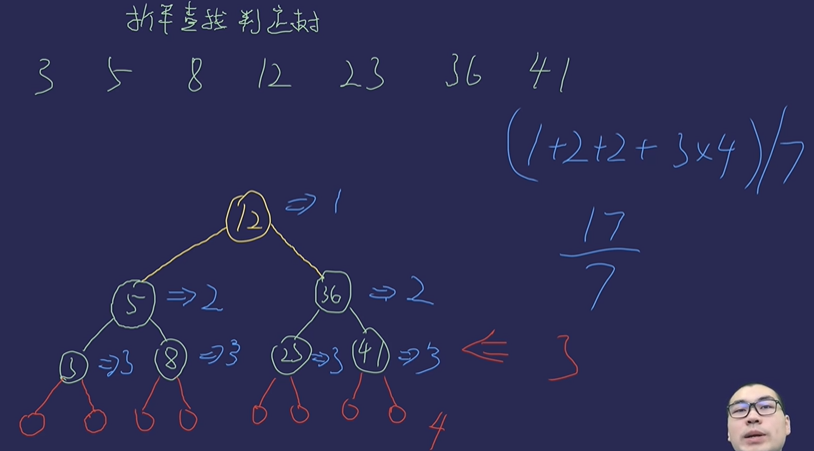 折半查找判定树
3 5 8 12 23 36 41
(1+2+2+3×4)/7
12 ⇒1
17
7
5 ⇒2 36 ⇒2
3 ⇒3 8 ⇒3 23 ⇒3 41 ⇒3 ⇐ 3
4